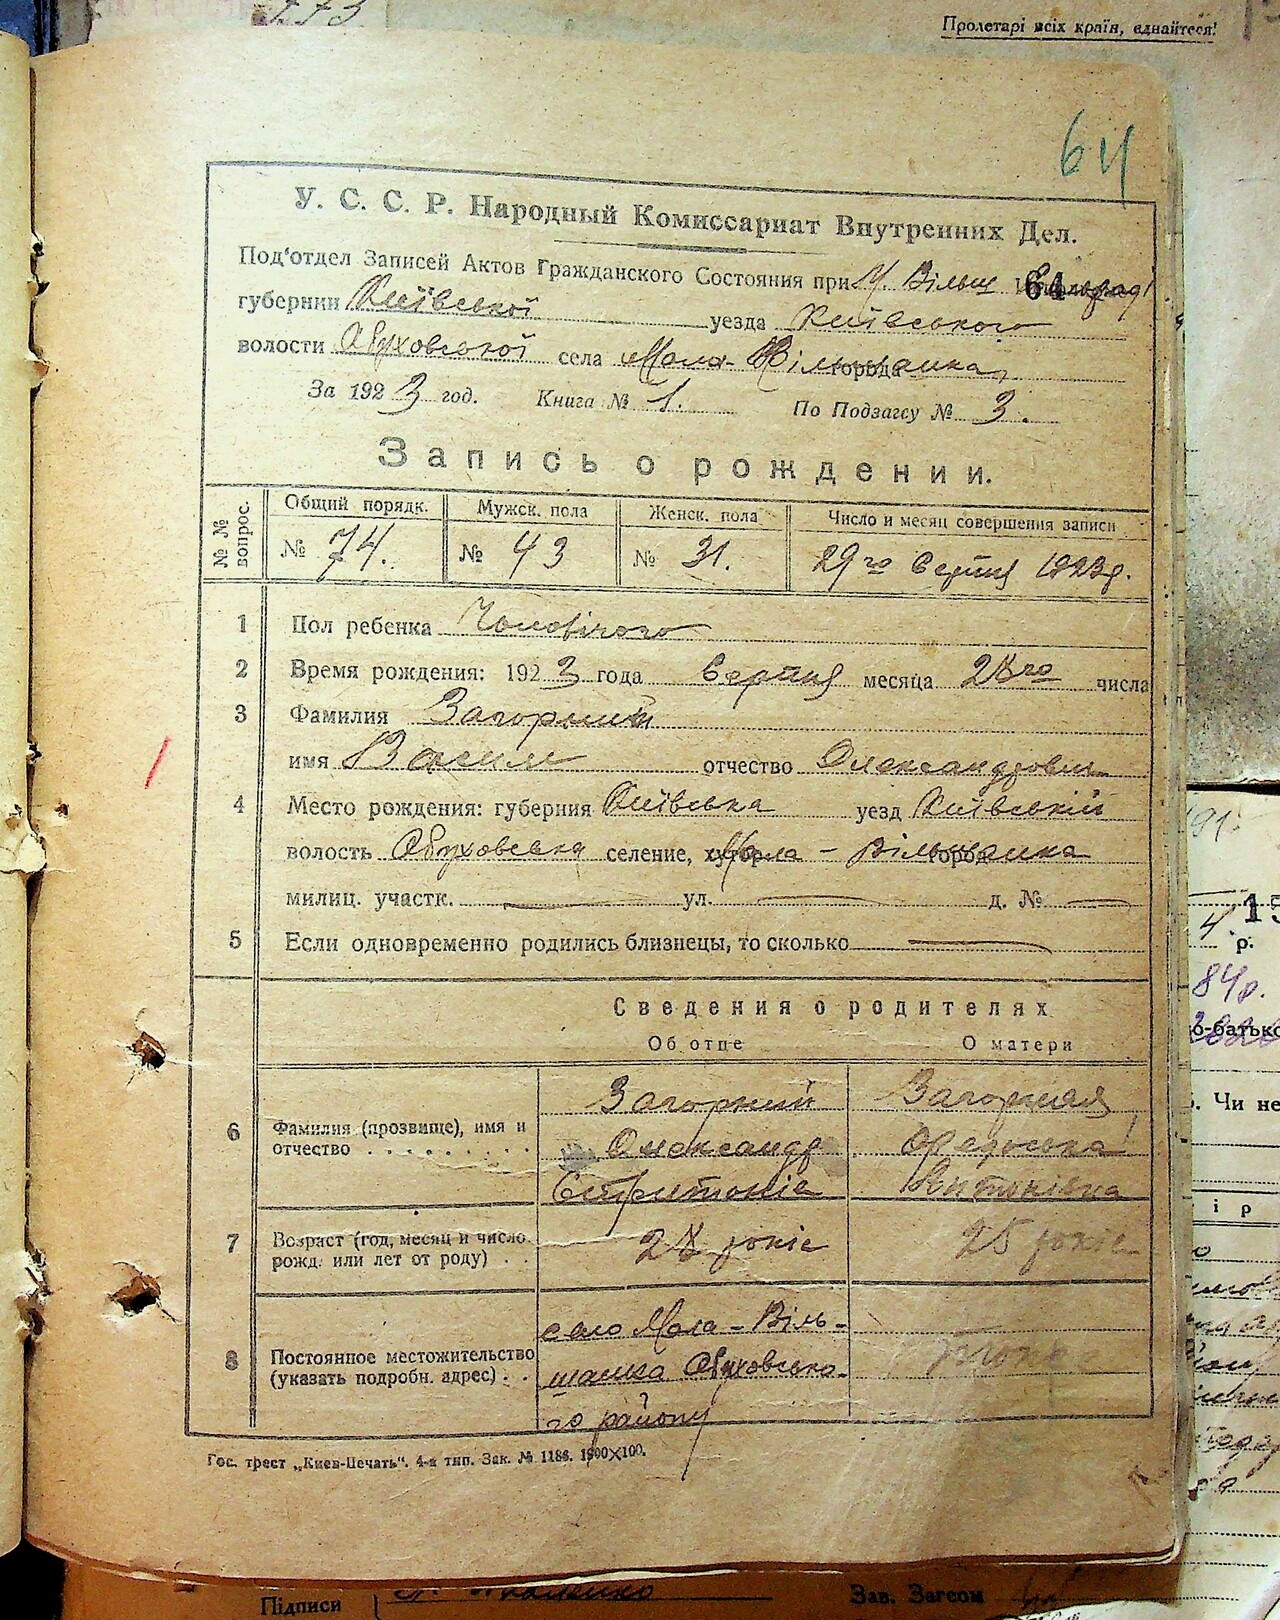 773
Пролетарі всіх країн, єднайтеся!
64
У. С. С. Р. Народный Комиссариат Внутренних Дел.
Под'отдел Записей Актов Гражданского Состояния при М. Вільш 64
губернии Київської уезда Київського
волости Обуховської села Мала-Вільшанка города
За 1923 год. Книга № 1. По Подзагсу № 3.
Запись о рождении.
№ № вопрос.
Общий порядк. Мужск. пола Женск. пола Число и месяц совершения записи
№ 74. № 43 № 31. 29го Серпня 1923р.
1 Пол ребенка Чоловічого
2 Время рождения: 1923 года Серпня месяца 28го числа
3 Фамилия Загорний
имя Василь отчество Олександрович
4 Место рождения: губерния Київська уезд Київський
волость Обуховська селение, хутор Мала-Вільшанка город
милиц. участк. — ул. — д. № —
5 Если одновременно родились близнецы, то сколько —
Сведения о родителях
Об отце О матери
6 Фамилия (прозвище), имя и отчество . . . . . . . . .
Загорний Загорная
Олександр
7 Возраст (год, месяц и число рожд. или лет от роду) . .
28 років 25 років
8 Постоянное местожительство (указать подробн. адрес) . .
село Мала-Віль-
шанка Обуховсько-
го району
Гос. трест „Киев-Печать“. 4-я тип. Зак. № 1186. 1800×100.
191
4. р.
15
84р.
о-батько
Чи не
ір
Підписи
Зав. Загсом